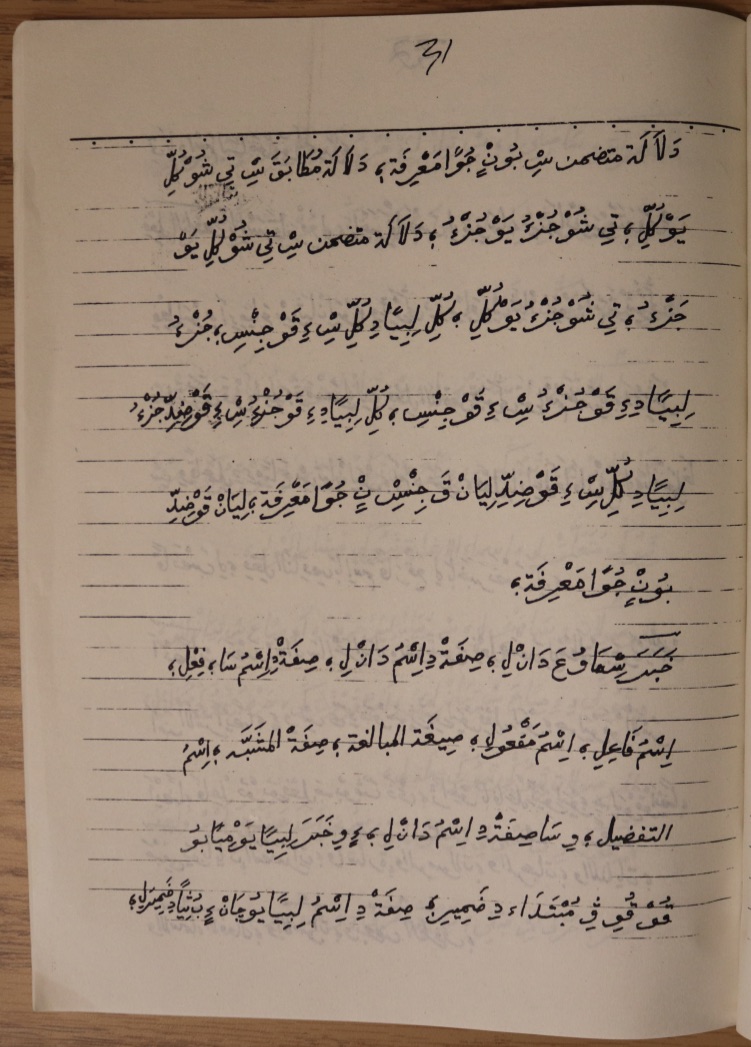 31
دَلَالَة متضمن سِ بُونْ جُوًّا مَعْرِفَة، دَلَالَة مُطَابَقَ سِ تِي شُوْ كُلِّ
يَوْ كُلِّ، تِي شُوْ جُزْءُ يَوْ جُزْءُ، دَلَالَة متضمن سِ تِي شُوْ كُلِّ يَوْ
جَزْءُ، تِي شُوْ جُزْءُ يَوْ كُلِّ، كُلِّ لِبِيَّا دِ كُلِّ سِ ءِ قَوْ جِنْسِ، جُزْءُ
لِبِيَّا دِءِ قَوْ جُزْءُ سِ ءِ قَوْ جِنْسِ، كُلِّ لِبِيَّا دِءِ قَوْ جُزْءُ سِ ءِ قَوْ ضِدِّ جُزْءُ
لِبِيَّا دِ كُلِّ سِ ءِ قَوْ ضِدِّ لِيَانْ قَ جِنْسِ نْ جُوًّا مَعْرِفَة، لِيَانْ قَوْ ضِدِّ
بُونْ جُوًّا مَعْرِفَة،
خَبَرَ شِعَاوُعَ دَانْ لِ، صِفَةْ دِ اِسْمُ دَانْ لِ، صِفَةْ دِ اِسْمُ سَا، فِعْلِ،
اِسْمُ فَاعِلِ، اِسْمُ مَفْعُولِ، صِيغَة المبالغة، صِفَةْ المشَبَّه، اِسْمُ
التفضيل، وِ سَا صِفَةْ دِ اِسْمُ دَانْ لِ، ءٍ وِ خَبَرَ لِبِيَّا يَوْ مِيَّا بُو
قُوْ قُوِ فِ مُبْتَدَاء دِ ضَمِيرِ، صِفَةْ دِ اِسْمُ لِبِيَّا يُوجَانْ ءٍ بُ تِيَّا دِ ضَمِيرِ لِ،